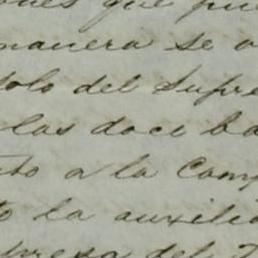 ones que pu
manera se o
dolo del Supre
las doce ba
to a la Comp
to la auxilia
presa del T